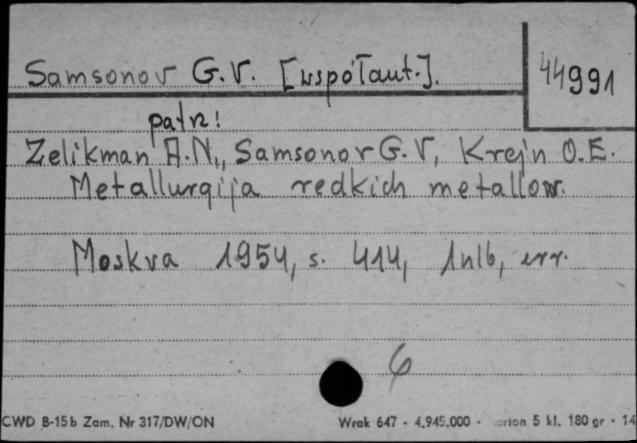 Samsonov G.V. [współaut.].
44991
patrz!
Zelikman A.N., Samsonov G.V, Krejn O.E.
Metallurgija redkich metallow.
Moskva 1954, s. 414, 1nlb, err.
6
CWD B-15b Zam. Nr 317/DW/ON Wrak 647 - 4.945.000 - 5 kl. 180 gr - 14